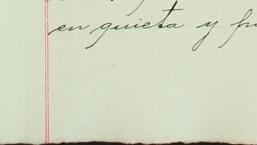 en quieta y